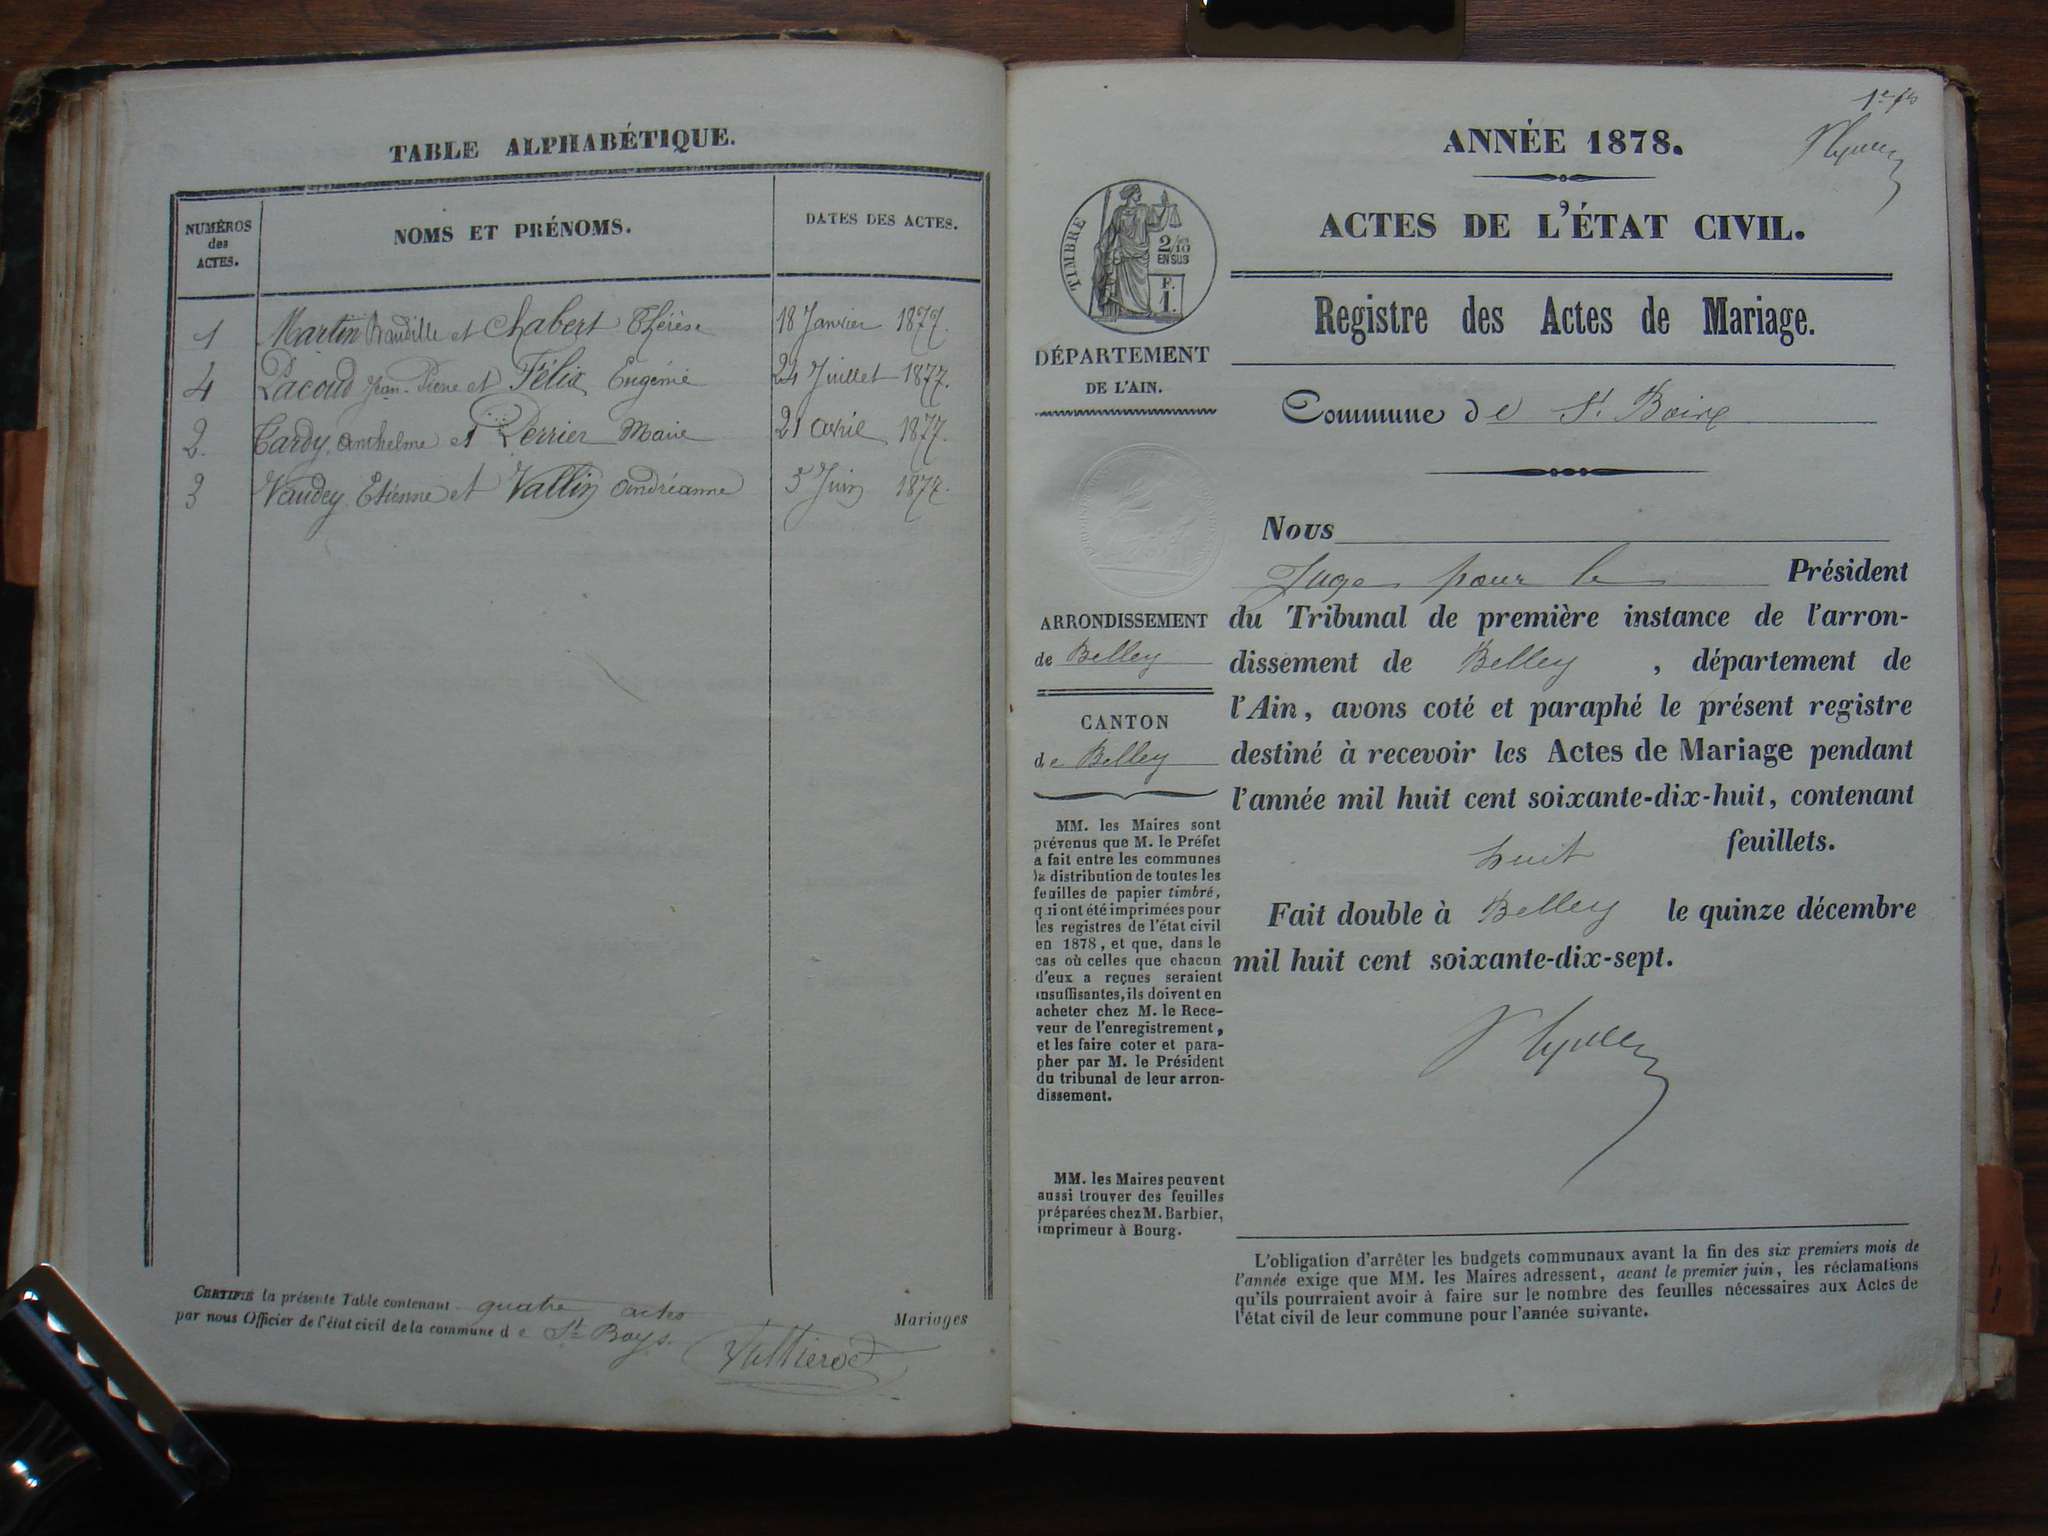 TABLE ALPHABÉTIQUE.
NUMÉROS
des
ACTES.
NOMS ET PRÉNOMS.
DATES DES ACTES.
1 Martin Baudille et Chabert Thérèse 18 Janvier 1877.
4 Lacoud Jean-Pierre et Félix Eugénie 24 Juillet 1877.
2. Tardy Anthelme et Perrier Marie 21 avril 1877.
3 Vaudey Etienne et Vallin Andréanne 5 Juin 1877.
CERTIFIÉ la présente Table contenant quatre actes Mariages
par nous Officier de l'état civil de la commune de St Boys.
1er fo
ANNÉE 1878.
ACTES DE L'ÉTAT CIVIL.
Registre des Actes de Mariage.
Commune de St. Boix
TIMBRE
2/10
EN SUS
F.
1.
DÉPARTEMENT
DE L'AIN.
ARRONDISSEMENT
de Belley
CANTON
de Belley
MM. les Maires sont
prévenus que M. le Préfet
a fait entre les communes
la distribution de toutes les
feuilles de papier timbré,
qui ont été imprimées pour
les registres de l'état civil
en 1878, et que, dans le
cas où celles que chacun
d'eux a reçues seraient
insuffisantes, ils doivent en
acheter chez M. le Rece-
veur de l'enregistrement,
et les faire coter et para-
pher par M. le Président
du tribunal de leur arron-
dissement.
MM. les Maires peuvent
aussi trouver des feuilles
préparées chez M. Barbier,
imprimeur à Bourg.
Nous
Juge pour le Président
du Tribunal de première instance de l'arron-
dissement de Belley, département de
l'Ain, avons coté et paraphé le présent registre
destiné à recevoir les Actes de Mariage pendant
l'année mil huit cent soixante-dix-huit, contenant
huit feuillets.
Fait double à Belley le quinze décembre
mil huit cent soixante-dix-sept.
L'obligation d'arrêter les budgets communaux avant la fin des six premiers mois de
l'année exige que MM. les Maires adressent, avant le premier juin, les réclamations
qu'ils pourraient avoir à faire sur le nombre des feuilles nécessaires aux Actes de
l'état civil de leur commune pour l'année suivante.